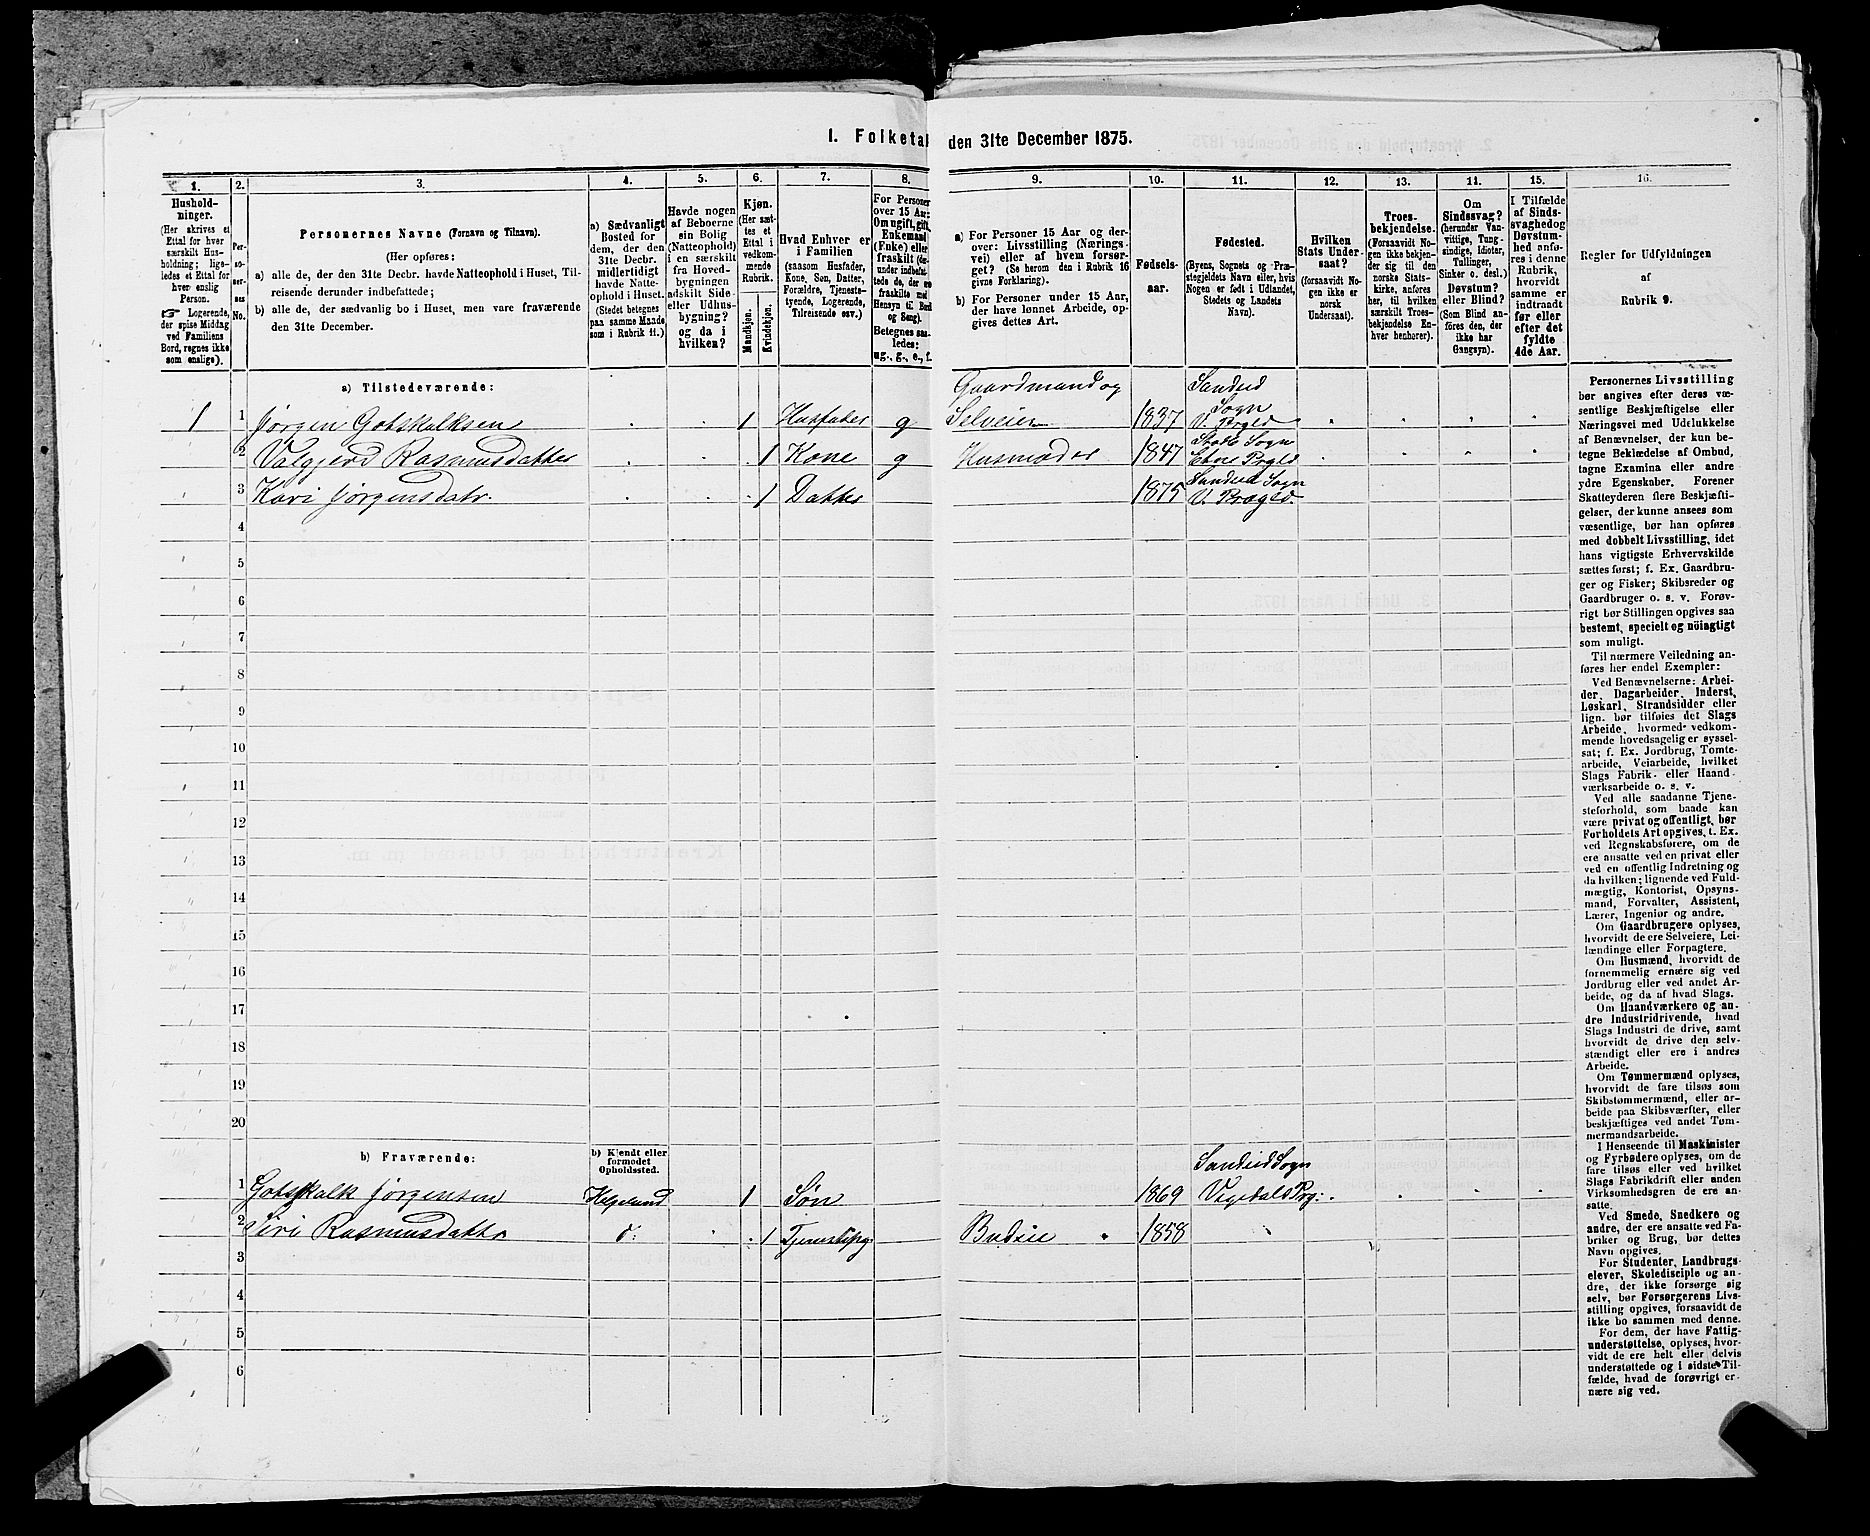 1. Folketæl
den 31te December 1875.
1. 2. 3. 4. 5. 6. 7. 8. 9. 10. 11. 12. 13. 14. 15. 16.
Hushold-
ninger.
(Her skrives et
Ettal for hver
særskilt Hus-
holdning; lige-
ledes et Ettal for
hver enslig
Person.
☞ Logerende,
der spise Middag
ved Familiens
Bord, regnes ikke
som enslige).
Per-
so-
ner-
nes
No.
Personernes Navne (Fornavn og Tilnavn).
(Her opføres:
a) alle de, der den 31te Decbr. havde Natteophold i Huset, Til-
reisende derunder indbefattede;
b) alle de, der sædvanlig bo i Huset, men vare fraværende
den 31te December.
a) Sædvanligt
Bosted for
dem, der den
31te Decbr.
midlertidigt
havde Natte-
ophold i Huset.
(Stedet betegnes
paa samme Maade
som i Rubrik 11.)
Havde nogen
af Beboerne
sin Bolig
(Natteophold)
i en særskilt
fra Hoved-
bygningen
adskilt Side-
eller Udhus-
bygning?
og da i
hvilken?
Kjøn.
(Her sæt-
tes et
Ettal i
vedkom-
mende
Rubrik.
Mandkjøn.
Kvindekjøn.
Hvad Enhver er
i Familien
(saasom Husfader,
Kone, Søn, Datter,
Forældre, Tjeneste-
tyende, Logerende,
Tilreisende osv.)
For Personer
over 15 Aar:
Om ugift, gift,
Enkemand
(Enke) eller
fraskilt (der-
under indbefat-
tede de, der ere
fraskilte med
Hensyn til Bord
og Seng).
Betegnes saa-
ledes:
ug., g., e., f.
a) For Personer 15 Aar og der-
over: Livsstilling (Nærings-
vei) eller af hvem forsør-
get? (Se herom den i Rubrik 16
givne Forklaring).
b) For Personer under 15 Aar,
der have lønnet Arbeide, op-
gives dettes Art.
Fødsels-
aar.
Fødested.
(Byens, Sognets og Præ-
stegjeldets Navn eller, hvis
Nogen er født i Udlandet,
Stedets og Landets
Navn).
Hvilken
Stats Under-
saat?
(forsaavidt No-
gen ikke er
norsk
Undersaat).
Troes-
bekjendelse.
(Forsaavidt No-
gen ikke bekjen-
der sig til den
norske Stats-
kirke, anføres
her, til hvilken
særskilt Troes-
bekjendelse En-
hver henhører).
Om
Sindssvag?
(herunder Van-
vittige, Tung-
sindige, Idioter,
Tullinger,
Sinker o. desl.)
Døvstum?
eller Blind?
(Som Blind an-
føres den, der
ikke har
Gangsyn).
I Tilfælde
af Sinds-
svaghedog
Døvstum-
hed anfø-
res i denne
Rubrik,
hvorvidt
samme er
indtraadt
før eller
efter det
fyldte
4de Aar.
Regler for Udfyldningen
af
Rubrik 9.
a) Tilstedeværende:
Gaardmand og Sandeid
Sogn
1 1 Jørgen Gotskalksen 1 Husfader g Selveier 1837 V. Prgld
Stole Sogn
2 Valgjerd Rasmusdatter 1 Kone g Husmoder 1847 Etne Prgld
Sandeid Sogn
3 Kari Jørgensdatr. 1 Datter 1875 V. Prægld.
4
5
6
7
8
9
10
11
12
13
14
15
16
17
18
19
20
b) Fraværende:
b) Kjendt eller
formodet
Opholdssted.
Sandeid Sogn
1 Gotskalk Jørgensen Helgeland 1 Søn 1869 Vigedals Prg:
2 Siri Rasmusdattr d: 1 Tjenestepg Budeie 1858
3
4
5
6
Personernes Livsstilling
bør angives efter deres væ-
sentlige Beskjæftigelse eller
Næringsvei med Udelukkelse
af Benævnelser, der kun be-
tegne Beklædelse af Ombud,
tagne Examina eller andre
ydre Egenskaber. Forener
Skatteyderen flere Beskjæfti-
gelser, der kunne ansees som
væsentlige, bør han opføres
med dobbelt Livsstilling, idet
hans vigtigste Erhvervskilde
sættes først; f. Ex. Gaardbru-
ger og Fisker; Skibsreder og
Gaardbruger o. s. v. Forøv-
rigt bør Stillingen opgives saa
bestemt, specielt og nöiagtigt
som muligt.
Til nærmere Veiledning an-
føres her endel Exempler:
Ved Benævnelserne: Arbei-
der, Dagarbeider, Inderst,
Løskarl, Strandsidder eller
lign. bør tilføies det Slags
Arbeide, hvormed vedkom-
mende hovedsagelig er syssel-
sat; f. Ex. Jordbrug, Tomte-
arbeide, Veiarbeide, hvilket
Slags Fabrik- eller Haand-
værksarbeide o. s. v.
Ved alle saadanne Tjene-
steforhold, som baade kan
være privat og offentligt, bør
Forholdets Art opgives, t. Ex.
ved Regnskabsførere, om de
ere ansatte ved en privat eller
ved en offentlig Indretning og
da hvilken; lignende ved Fuld-
mægtig, Kontorist, Opsyns-
mand, Forvalter, Assistent,
Lærer, Ingeniør og andre.
Om Gaardbrugere oplyses,
hvorvidt de ere Selveiere, Lei-
lændinge eller Forpagtere.
Om Husmænd, hvorvidt de
fornemmelig ernære sig ved
Jordbrug eller ved andet Ar-
beide, og da af hvad Slags.
Om Haandværkere og an-
dre Industridrivende, hvad
Slags Industri de drive, samt
hvorvidt de drive den selv-
stændigt eller ere i andres
Arbeide.
Om Tømmermænd oplyses,
hvorvidt de fare tilsøs som
Skibstømmermænd, eller ar-
beide paa Skibsværfter, eller
beskjæftiges ved andet Tøm-
mermandsarbeide.
I Henseende til Maskinister
og Fyrbødere oplyses, om de
fare tilsøs eller ved hvilket
Slags Fabrikdrift eller anden
Virksomhedsgren de ere an-
satte.
Ved Smede, Snedkere og
andre, der ere ansatte ved Fa-
briker og Brug, bør dettes
Navn opgives.
For Studenter, Landbrugs-
elever, Skoledisciple og an-
dre, der ikke forsørge sig
selv, bør Forsørgerens Livs-
stilling opgives, forsaavidt de
ikke bo sammen med denne.
For dem, der have Fattig-
understøttelse, oplyses, hvor-
vidt de ere helt eller delvis
understøttede og i sidste Til-
fælde, hvad de forøvrigt er-
nære sig ved.